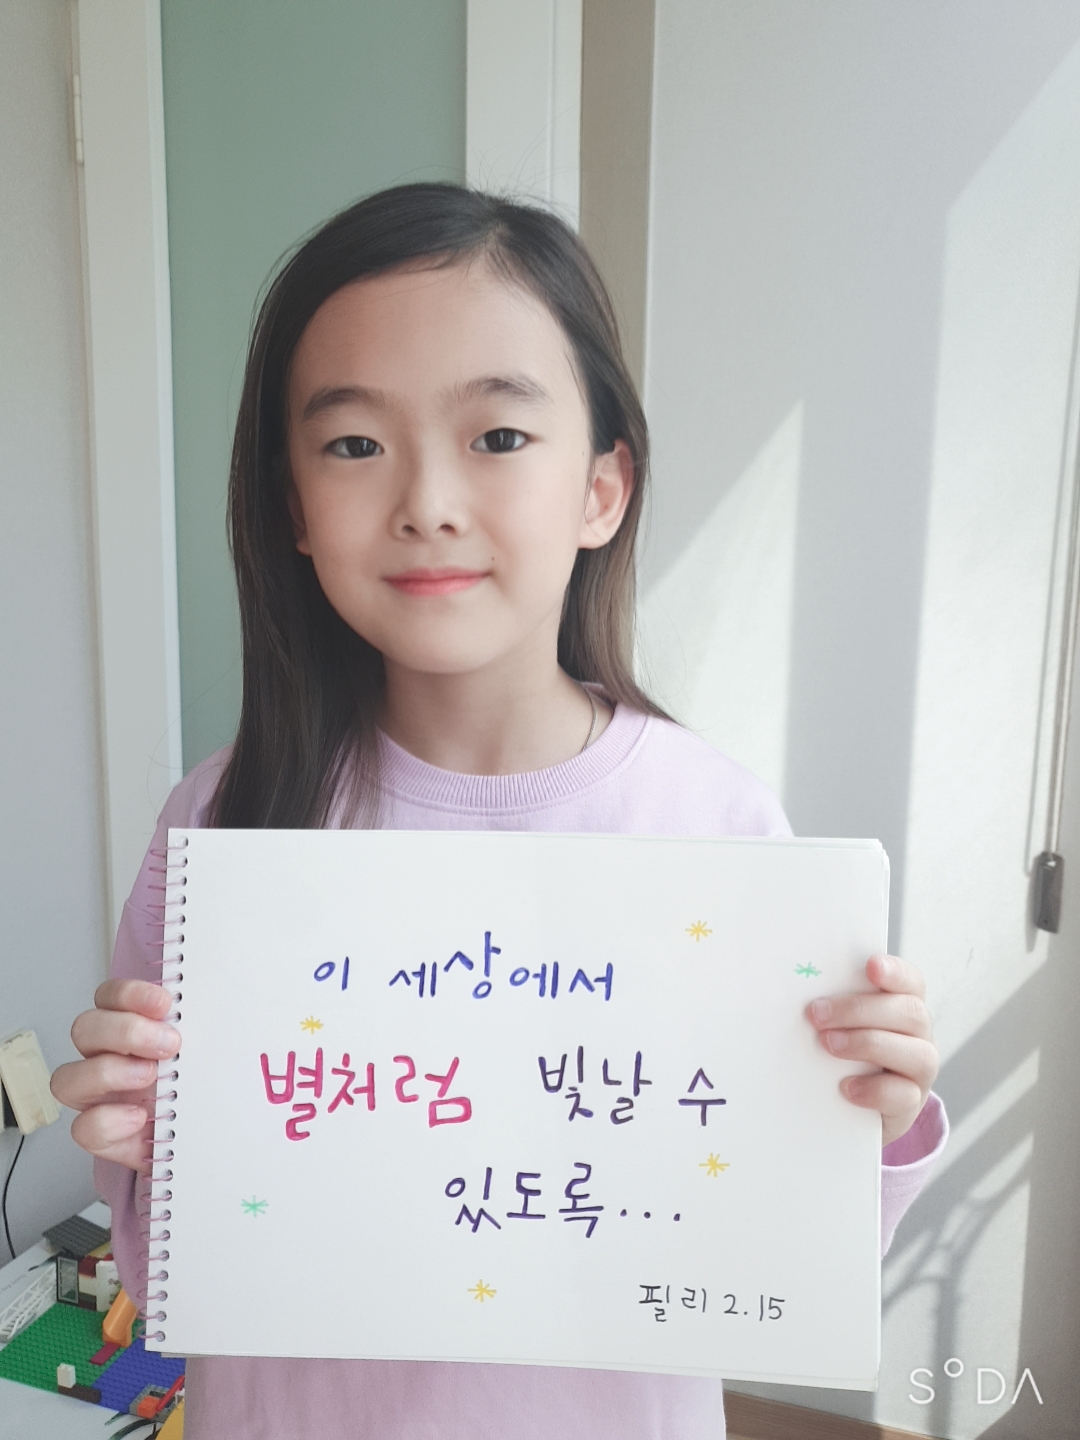 이 세상에서
별처럼 빛날 수
있도록...
필리 2.15
SODA